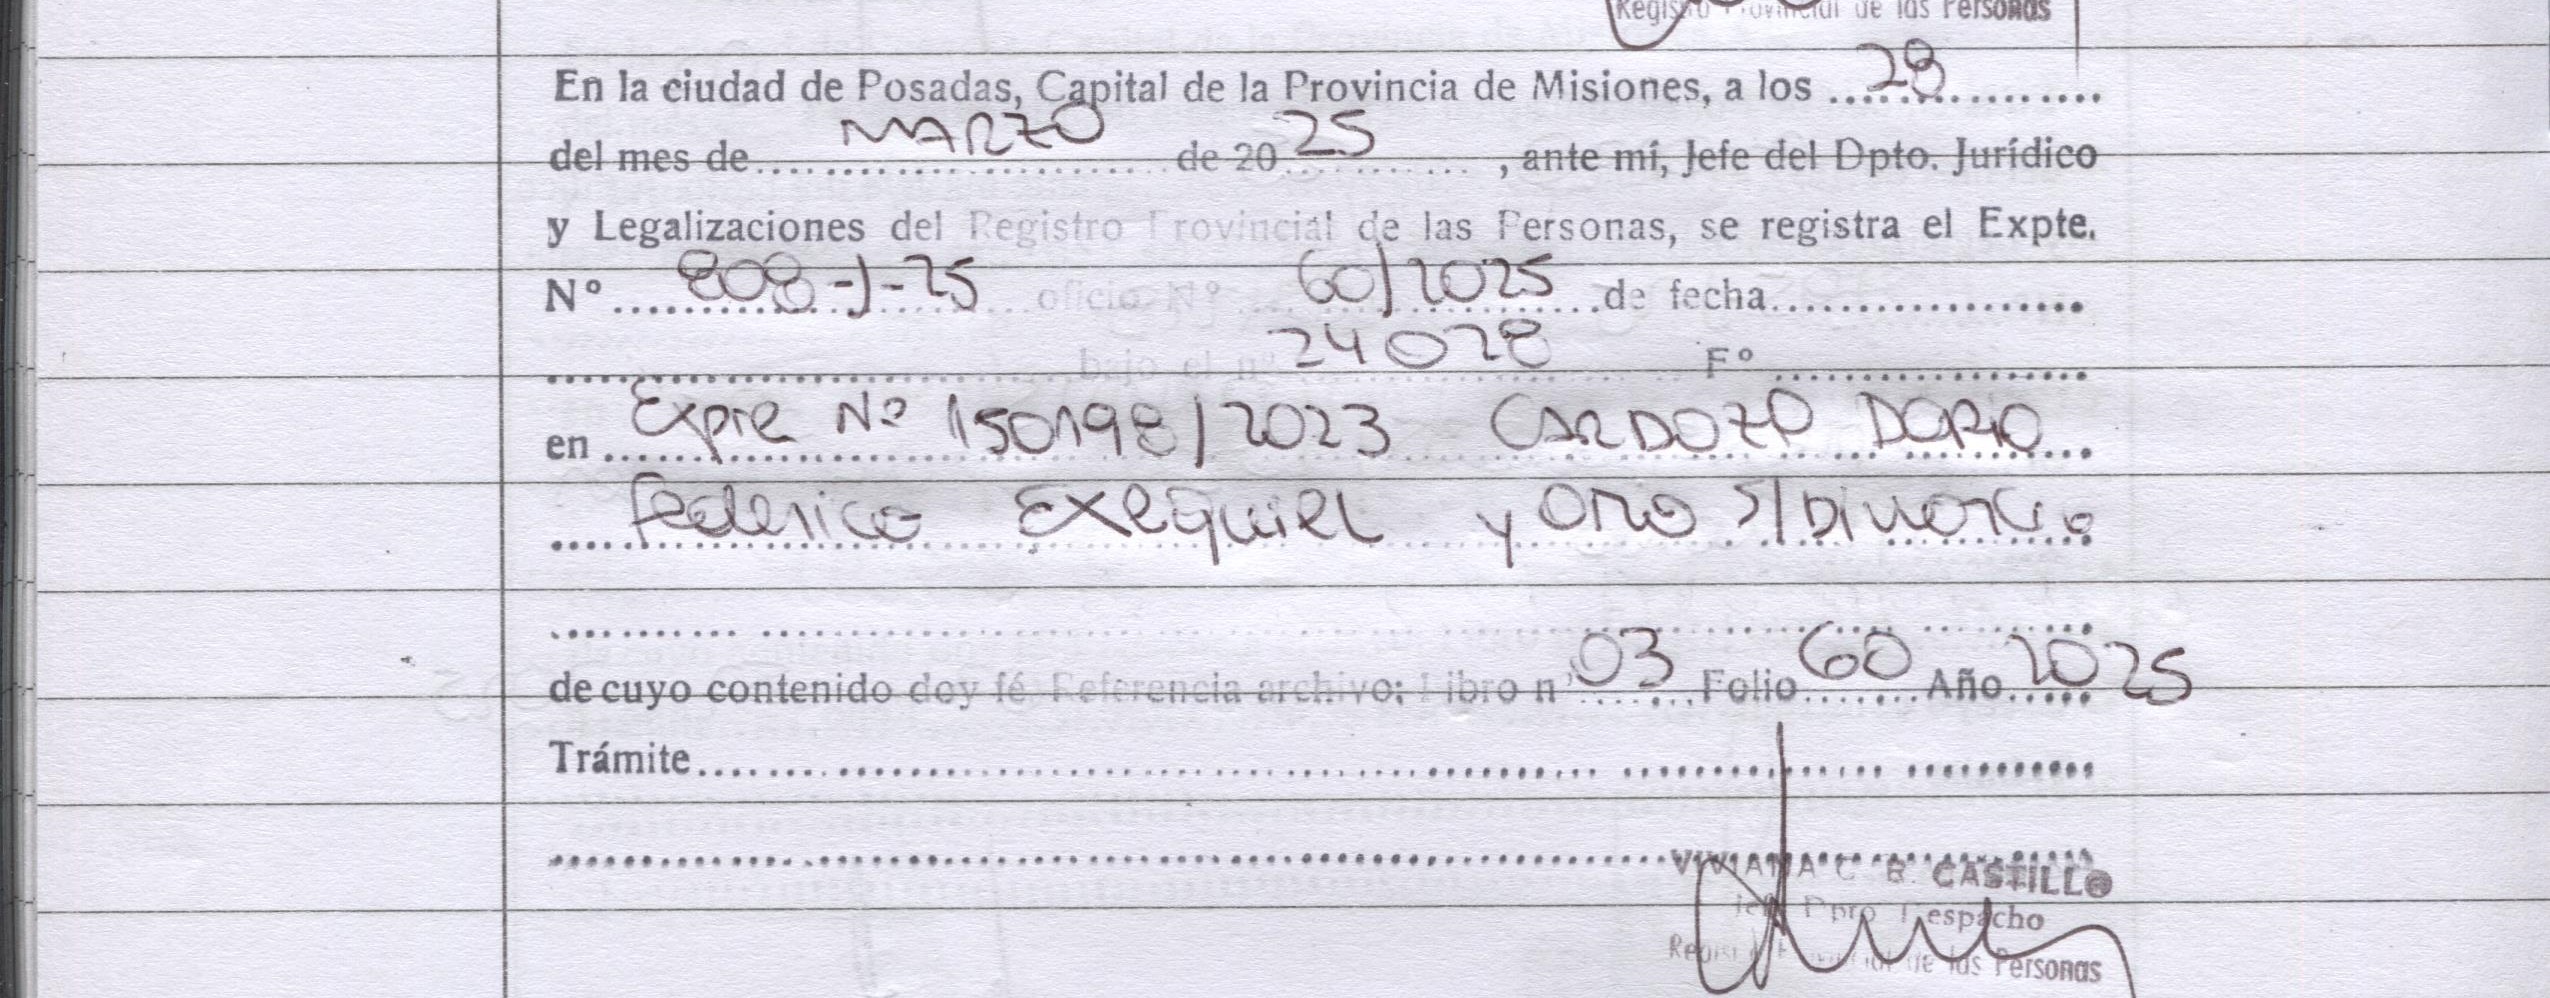 Registro Provincial de las Personas
En la ciudad de Posadas, Capital de la Provincia de Misiones, a los 28
del mes de MARZO de 20 25, ante mí, Jefe del Dpto. Jurídico
y Legalizaciones del Registro Provincial de las Personas, se registra el Expte.
Nº 808-J-25 oficio Nº 60/2025 de fecha
bajo el nº 24028 Fº
en Expte Nº 150198/2023 CARDOZO DARIO
Federico Exequiel y OTRO S/DIVORCIO
de cuyo contenido doy fé Referencia archivo: Libro nº 03 Folio 60 Año 2025
Trámite
VIVIANA C B. CASTILLO
Jefe Dpto. Despacho
Registro Provincial de las Personas